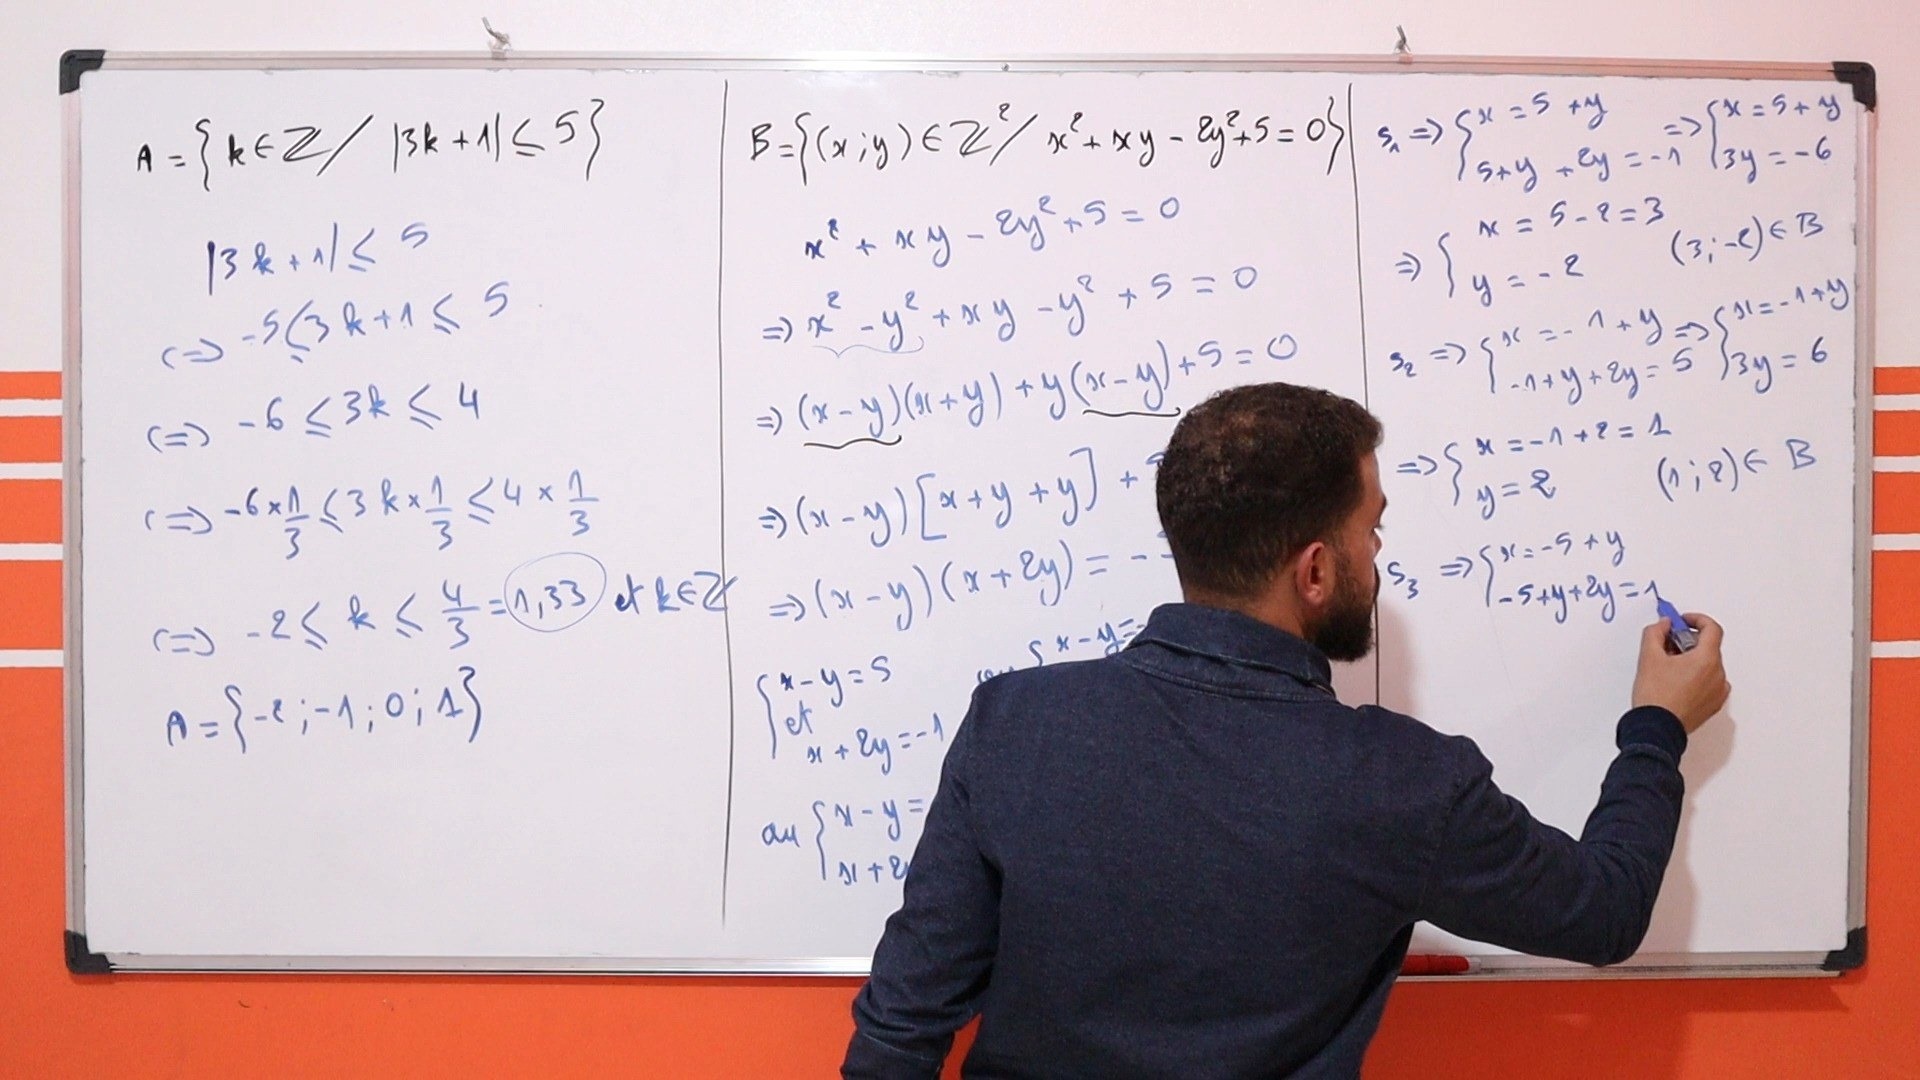 A = { k ∈ ℤ / |3k + 1| ≤ 5 }
|3k + 1| ≤ 5
<=> -5 ≤ 3k + 1 ≤ 5
<=> -6 ≤ 3k ≤ 4
<=> -6 × 1/3 ≤ 3k × 1/3 ≤ 4 × 1/3
<=> -2 ≤ k ≤ 4/3 = 1,33 et k ∈ ℤ
A = { -2 ; -1 ; 0 ; 1 }
B = { (x ; y) ∈ ℤ² / x² + xy - 2y² + 5 = 0 }
x² + xy - 2y² + 5 = 0
=> x² - y² + xy - y² + 5 = 0
=> (x - y)(x + y) + y(x - y) + 5 = 0
=> (x - y) [x + y + y] +
=> (x - y)(x + 2y) = -
{ x - y = 5
et
x + 2y = -1
ou { x - y =
ou { x - y =
x + 2
S₁ => { x = 5 + y => { x = 5 + y
5 + y + 2y = -1 3y = -6
=> { x = 5 - 2 = 3
y = -2 (3 ; -2) ∈ B
S₂ => { x = -1 + y => { x = -1 + y
-1 + y + 2y = 5 3y = 6
=> { x = -1 + 2 = 1
y = 2 (1 ; 2) ∈ B
S₃ => { x = -5 + y
-5 + y + 2y = 1